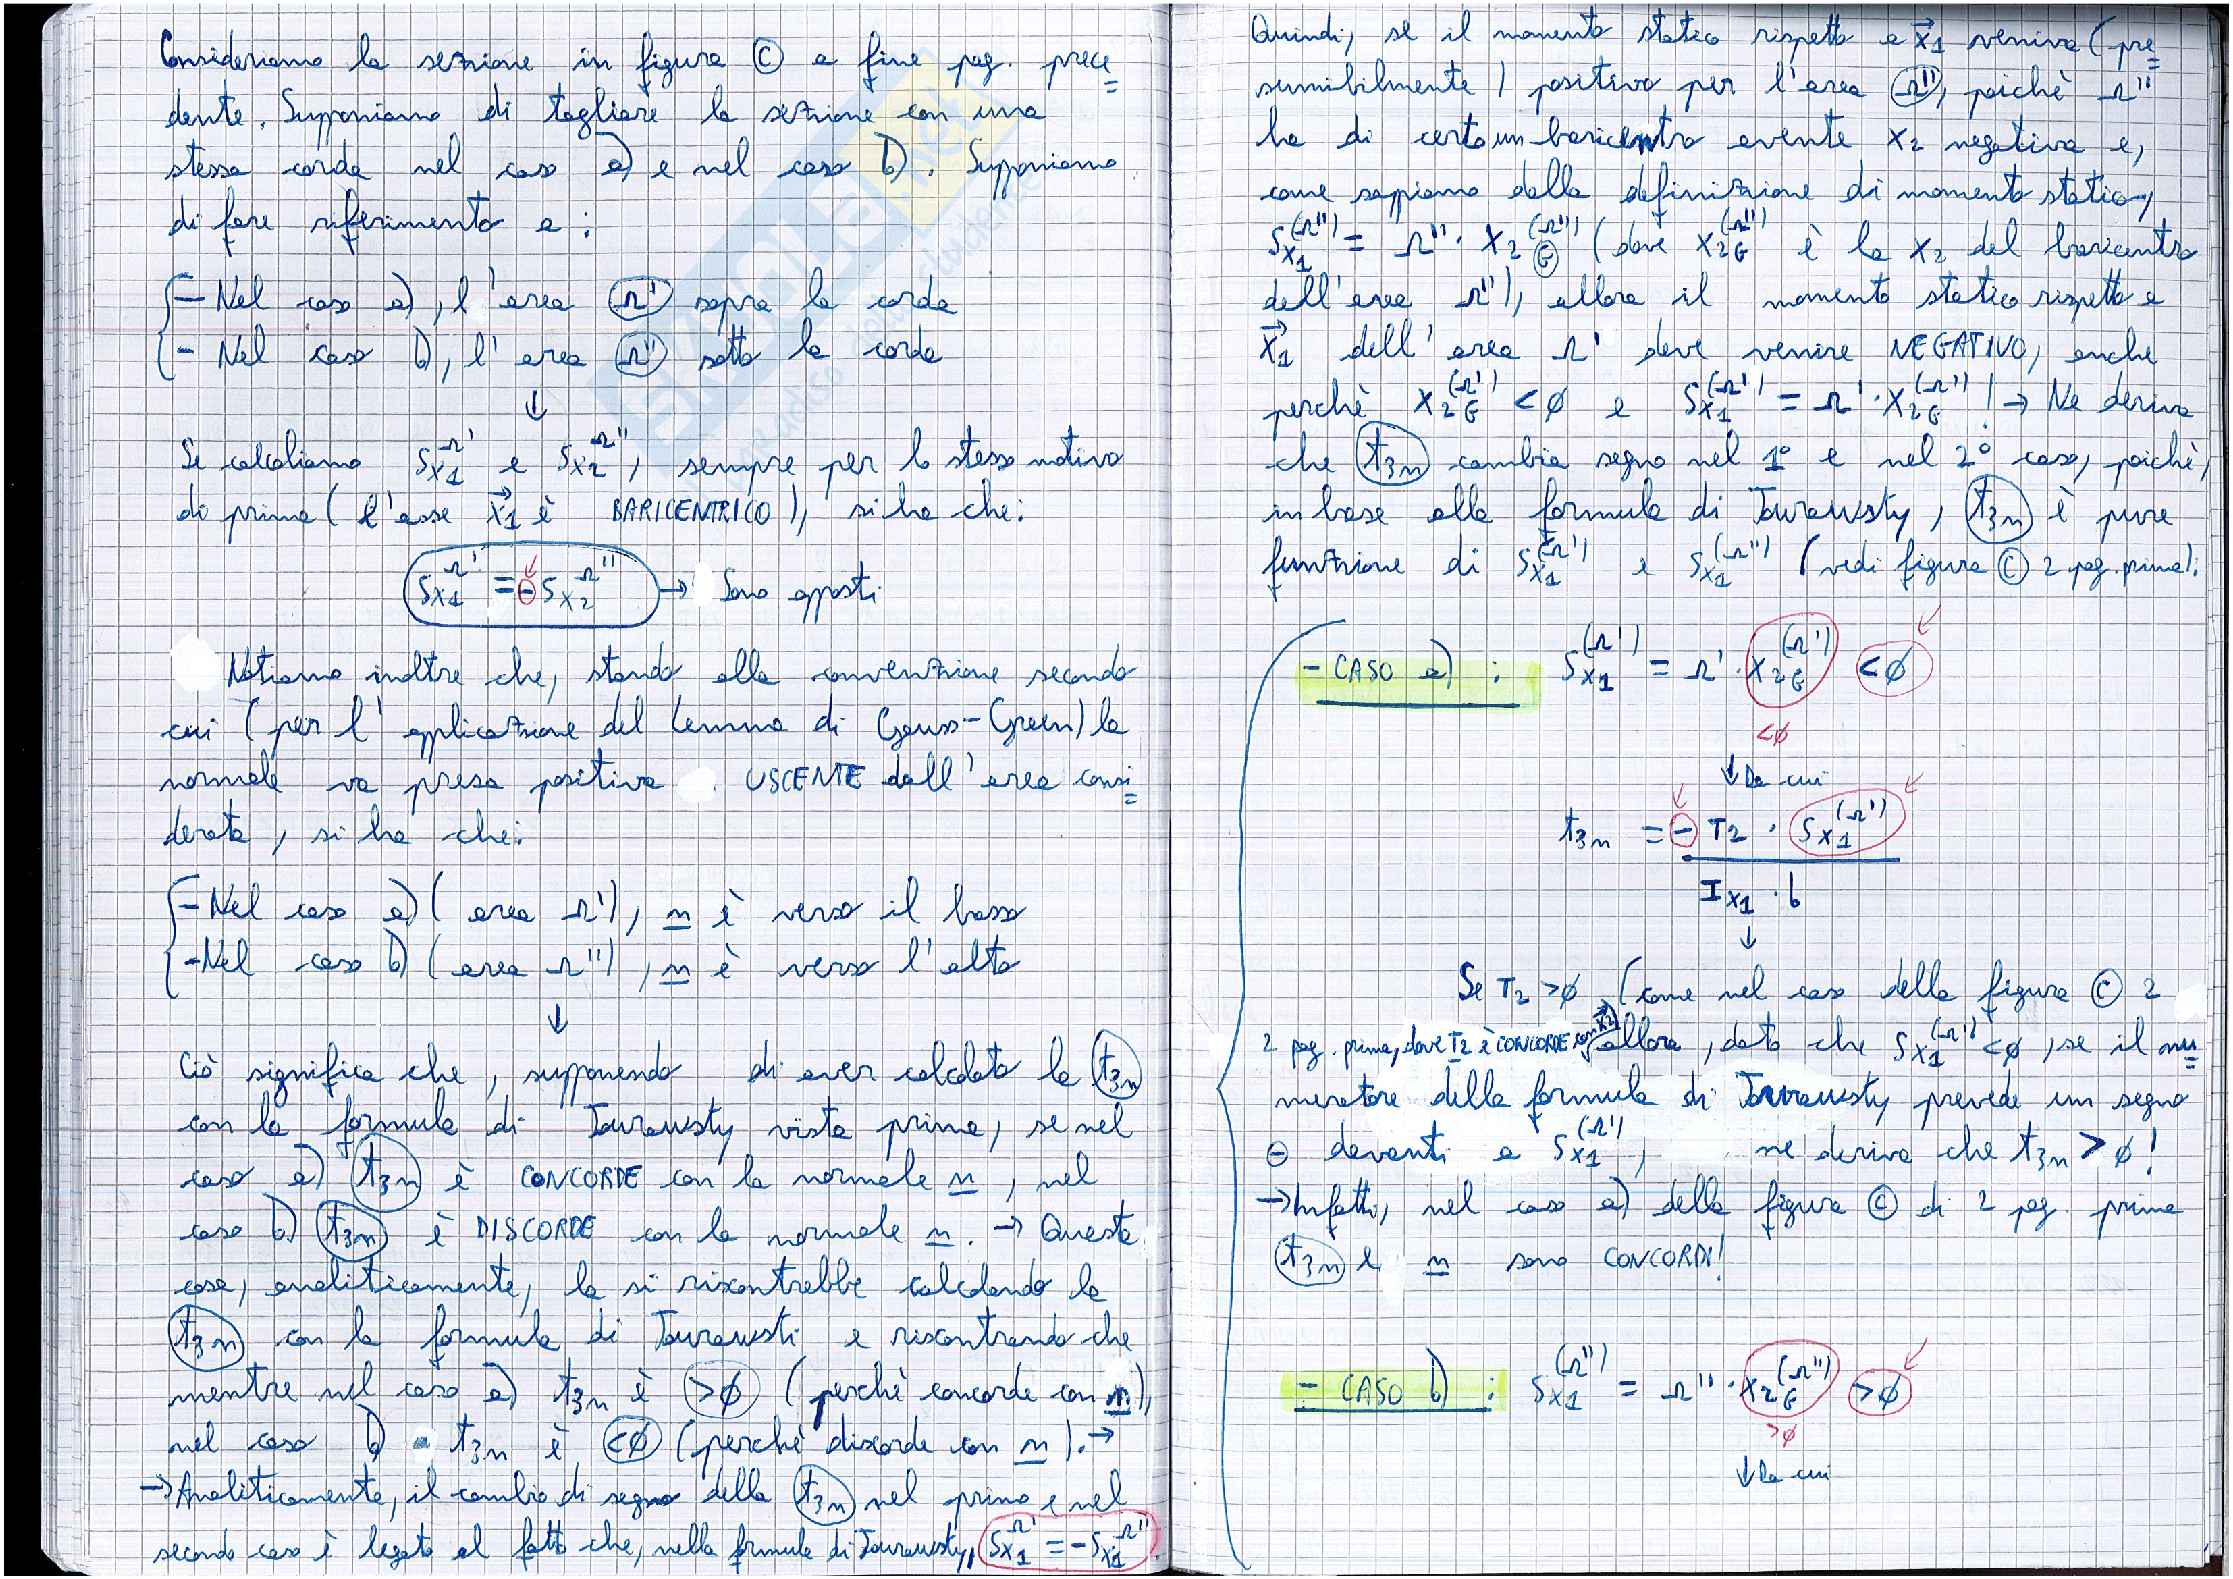 Consideriamo la sezione in figura Ⓒ a fine pag. prece=
dente. Supponiamo di tagliare la sezione con una
stessa corda nel caso a) e nel caso b). Supponiamo
di fare riferimento a:
- Nel caso a), l'area Ω' sopra la corda
- Nel caso b), l'area Ω'' sotto la corda
↓
Se calcoliamo Sx1^Ω' e Sx2^Ω'', sempre per lo stesso motivo
di prima (l'asse x⃗1 è BARICENTRICO), si ha che:
Sx1^Ω' = - Sx2^Ω'' → Sono opposti
Notiamo inoltre che, stando alla convenzione secondo
cui (per l'applicazione del Lemma di Gauss-Green) la
normale va presa positiva USCENTE dall'area consi=
derata, si ha che:
- Nel caso a) (area Ω'), n è verso il basso
- Nel caso b) (area Ω''), n è verso l'alto
↓
Ciò significa che, supponendo di aver calcolato la t3n
con la formula di Jourawsty vista prima, se nel
caso a) t3n è CONCORDE con la normale n, nel
caso b) t3n è DISCORDE con la normale n. → Questa
cosa, analiticamente, la si riscontrebbe calcolando la
t3n con la formula di Jourawsti e riscontrando che
mentre nel caso a) t3n è >ø (perchè concorde con n),
nel caso b) t3n è <ø (perchè discorde con n). →
→ Analiticamente, il cambio di segno della t3n nel primo e nel
secondo caso è legato al fatto che, nella formula di Jourawsty, Sx1^Ω' = -Sx1^Ω''
Quindi, se il momento statico rispetto a x⃗1 veniva (pre=
sumibilmente) positivo per l'area Ω'', poichè Ω''
ha di certo un baricentro avente x2 negativa e,
come sappiamo dalla definizione di momento statico,
Sx1^(Ω'') = Ω'' · x2G^(Ω'') (dove x2G^(Ω'') è la x2 del baricentro
dell'area Ω''), allora il momento statico rispetto a
x⃗1 dell'area Ω' deve venire NEGATIVO, anche
perchè x2G^(Ω') <ø e Sx1^(Ω') = Ω' · x2G^(Ω'') ! → Ne deriva
che t3n cambia segno nel 1° e nel 2° caso, poichè,
in base alla formula di Jourawsty, t3n è pure
funzione di Sx1^(Ω') e Sx1^(Ω'') (vedi figura Ⓒ 2 pag. prima):
- CASO a) : Sx1^(Ω') = Ω' · x2G^(Ω') <ø
<ø
↓ Da cui
t3n = - T2 · Sx1^(Ω')
Ix1 · b
↓
Se T2 >ø (come nel caso della figura Ⓒ 2
2 pag. prima, dove T2 è CONCORDE con x⃗2) allora, dato che Sx1^(Ω') <ø, se il nu=
meratore della formula di Jourawsty prevede un segno
⊖ davanti a Sx1^(Ω'), ne deriva che t3n >ø!
→ Infatti, nel caso a) della figura Ⓒ di 2 pag. prima
t3n e n sono CONCORDI!
- CASO b) : Sx1^(Ω'') = Ω'' · x2G^(Ω'') >ø
>ø
↓ Da cui